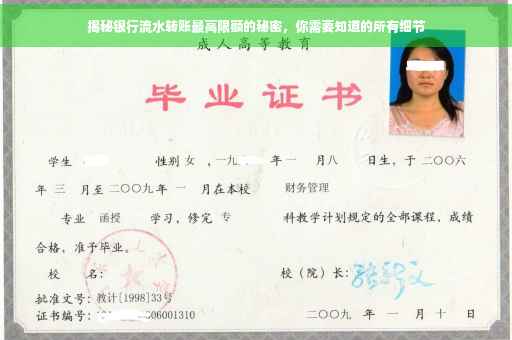 揭秘银行流水转账最高限额的秘密，你需要知道的所有细节
成人高等教育
毕业证书
学生 性别 女 ，一九 年 一 月 八 日生，于 二〇〇六
年 三 月至 二〇〇九 年 一 月在本校 财务管理
专业 函授 学习，修完 专 科教学计划规定的全部课程，成绩
合格，准予毕业。
校 名： 校（院）长：
批准文号：教计[1998]33号
证书编号： 06001310 二〇〇九 年 一 月 十 日